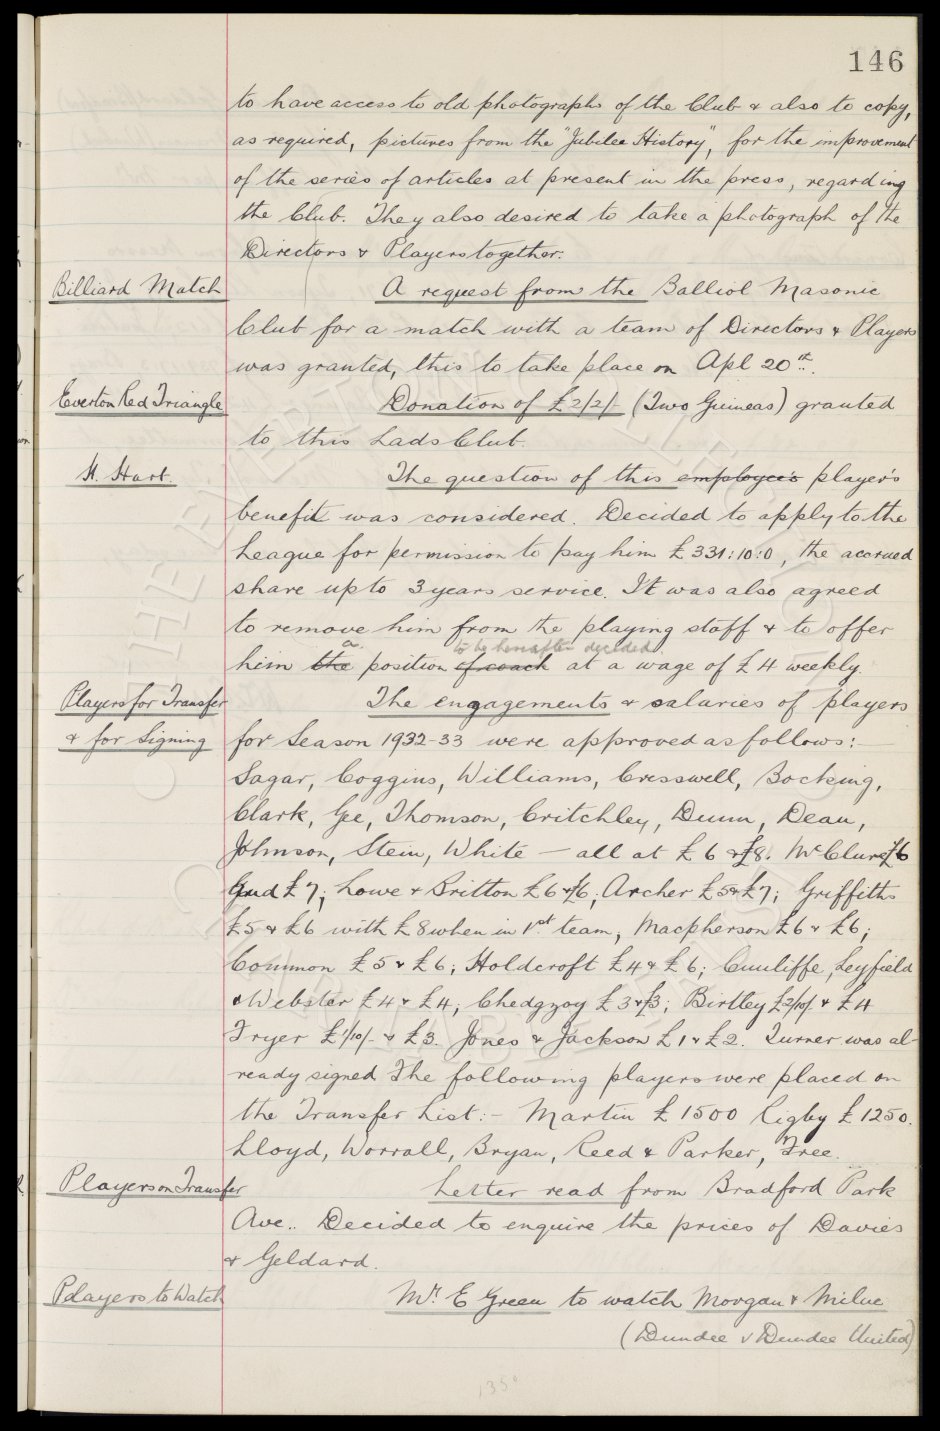 146
to have access to old photographs of the Club & also to copy,
as required, pictures from the "Jubilee History", for the improvement
of the series of articles at present in the press, regarding
the Club. They also desired to take a photograph of the
Directors & Players together.
Billiard Match
A request from the Balliol Masonic
Club for a match with a team of Directors & Players
was granted, this to take place on Apl 20th.
Everton Red Triangle
Donation of £2/2/- (Two Guineas) granted
to this Lads Club.
H. Hart.
The question of this employee's player's
benefit was considered. Decided to apply to the
League for permission to pay him £331:10:0, the accrued
share up to 3 years service. It was also agreed
to remove him from the playing staff & to offer
a to be hereafter decided
him the position of coach at a wage of £4 weekly.
Players for Transfer
& for Signing
The engagements & salaries of players
for Season 1932-33 were approved as follows:-
Sagar, Coggins, Williams, Cresswell, Bocking,
Clark, Gee, Thomson, Critchley, Dunn, Dean,
Johnson, Stein, White - all at £6 & £8. McClure £6
and £7; Lowe & Britton £6 & £6; Archer £5 & £7; Griffiths
£5 & £6 with £8 when in 1st team, Macpherson £6 & £6;
Common £5 & £6; Holdcroft £4 & £6; Cunliffe, Leyfield
& Webster £4 & £4; Chedgzoy £3 & £3; Birtley £2/10/- & £4
Fryer £1/10/- & £3. Jones & Jackson £1 & £2. Turner was al-
ready signed. The following players were placed on
the Transfer List:- Martin £1500 Rigby £1250.
Lloyd, Worrall, Bryan, Reed & Parker, Free.
Players on Transfer
Letter read from Bradford Park
Ave.. Decided to enquire the prices of Davies
& Geldard.
Players to Watch
Mr. E Green to watch Morgan & Milne
(Dundee v Dundee United)